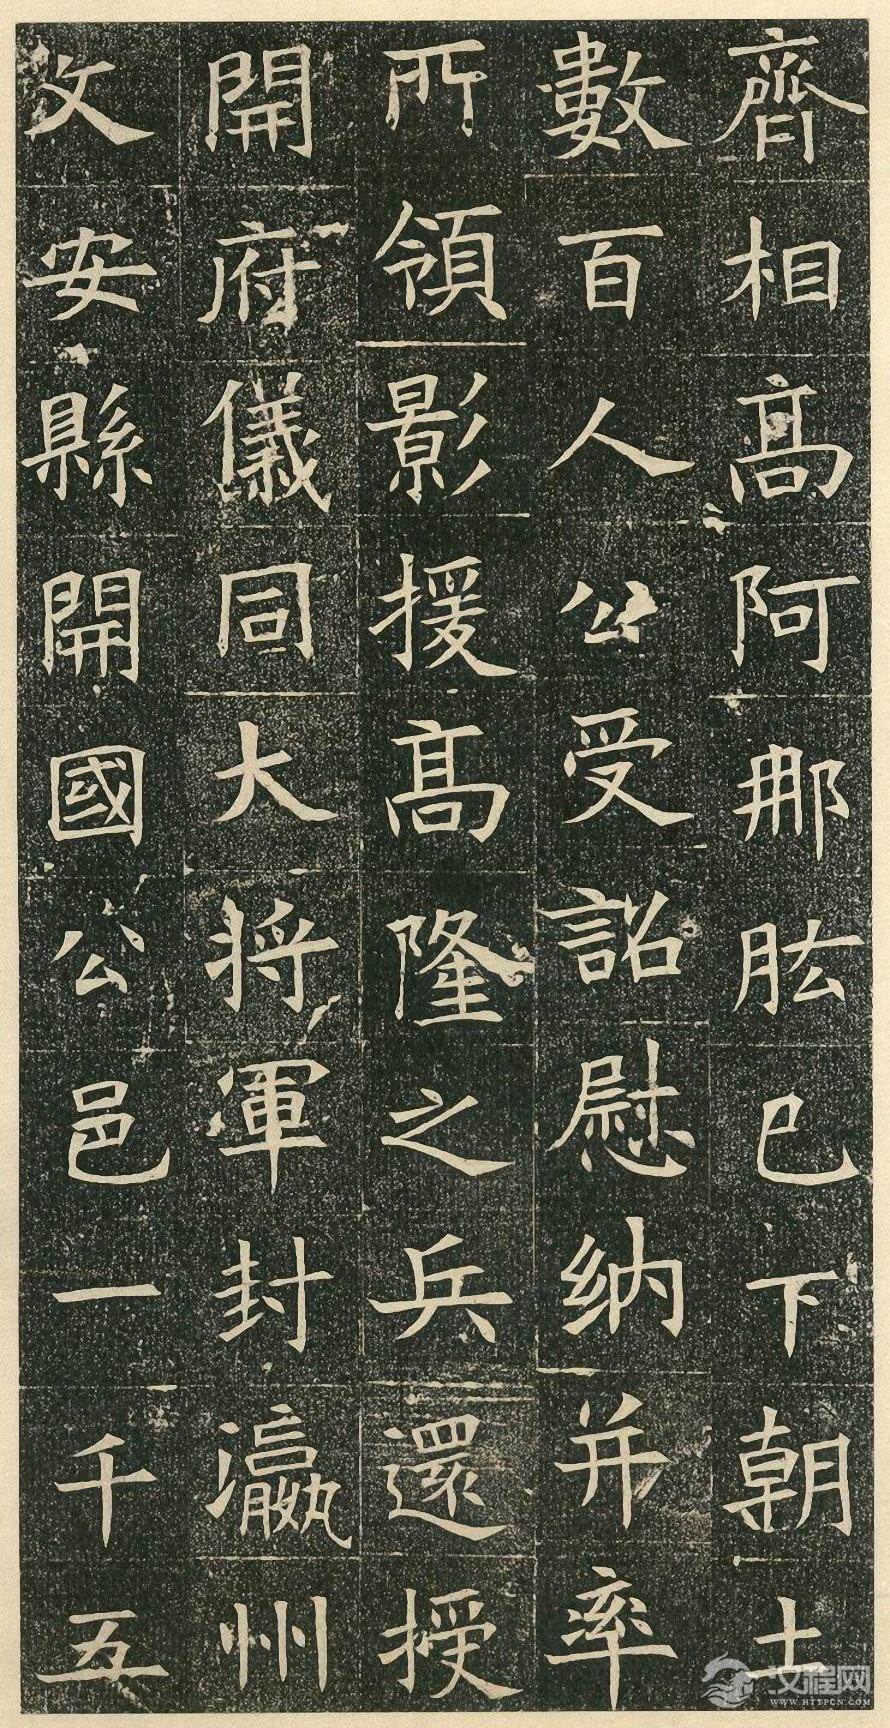 齊相高阿那肱已下朝士
數百人公受詔慰納并率
所領影援高隆之兵還授
開府儀同大將軍封瀛州
文安縣開國公邑一千五
汉程网
WWW.HTTPCN.COM